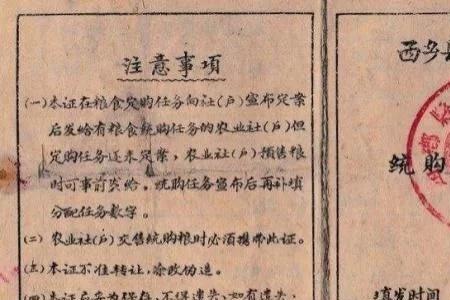 注意事项
(一)本证在粮食定购任务向社(户)宣布定案
后发给有粮食统购任务的农业社(户)但
定购任务还未定案,农业社(户)预售粮
时可事前发给。统购任务宣布后再补填
分配任务数字。
(二)农业社(户)交售统购粮时必须携带此证。
(三)本证不准转让,涂改伪造。
(四)本证应妥为保存,不得遗失,如有遗失,
西乡县
统购
填发时间